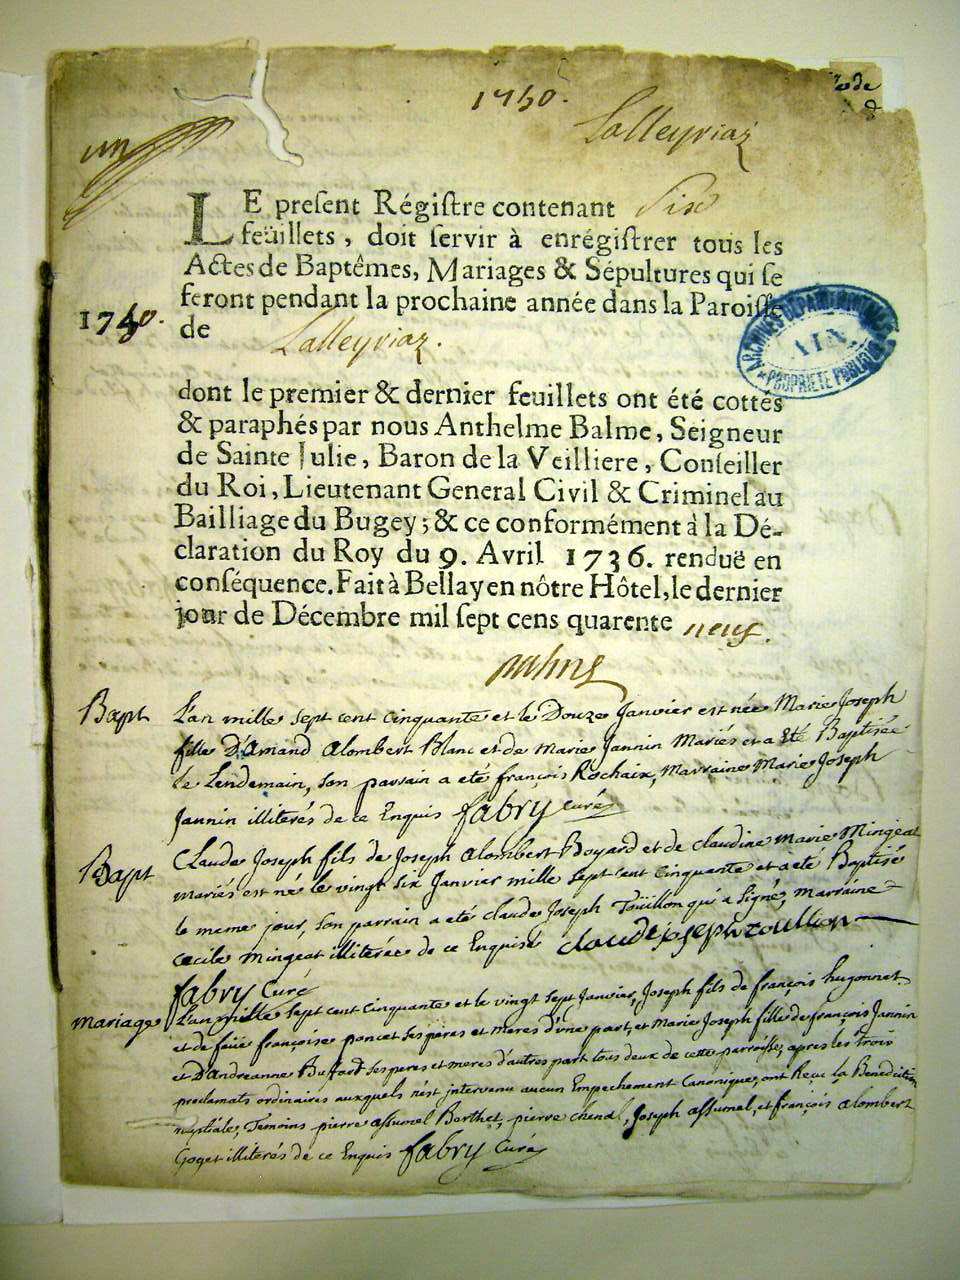 1750.
Lalleyriaz
un
LE preſent Régiſtre contenant Six
feüillets, doit ſervir à enrégiſtrer tous les
Actes de Baptêmes, Mariages & Sépultures qui ſe
feront pendant la prochaine année dans la Paroiſſe
1750.
de Lalleyriaz.
ARCHIVES DÉPARTEMENTALES
AIN
PROPRIÉTÉ PUBLIQUE
dont le premier & dernier feuillets ont été cottés
& paraphés par nous Anthelme Balme, Seigneur
de Sainte Julie, Baron de la Veilliere, Conſeiller
du Roi, Lieutenant General Civil & Criminel au
Bailliage du Bugey; & ce conformément à la Dé-
claration du Roy du 9. Avril 1736. renduë en
conſéquence. Fait à Bellay en nôtre Hôtel, le dernier
jour de Décembre mil ſept cens quarente neuf.
Bapt L'an mille sept cent cinquante et le Douze Janvier est née Marie Joseph
fille D'Amand Alombert Blanc et de Marie Jannin Mariés et a eté Baptisée
le Lendemain, son parrain a eté françois Rochaix, Marraine Marie Joseph
Jannin illiterés de ce Enquis fabry Curé
Bapt Claude Joseph fils de Joseph Alombert Boyard et de claudine Marie Mingeat
mariés est né le vingt six Janvier mille sept cent cinquante et a eté Baptisé
le meme jour, son parrain a eté claude Joseph Toüillon qui a signé, marraine
cecile mingeat illiterée de ce Enquise claude joseph toullion
fabry Curé
Mariage L'an mille sept cent cinquante et le vingt sept Janvier, Joseph fils de françois hugonnet
et de feüe françoise poncet ses peres et meres d'une part, et Marie Joseph fille de françois Jannin
et D'Andreanne Buffard ses peres et meres d'autres part tous deux de cette parroisse, apres les trois
proclamats ordinaires auxquels n'est intervenu aucun Empechement Canonique, ont Reçu la Benediction
nuptiale, Temoins pierre assumel Berthet, pierre chenal, Joseph assumel, et françois Alombert
Goget illiterés de ce Enquis fabry Curé